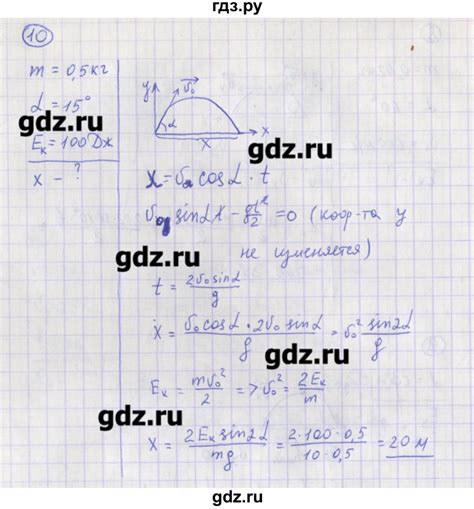 гдз.ру
10
m = 0,5 кг
α = 15°
Eк = 100 Дж
x – ?
y
v₀
α
x
x
gdz.ru
gdz.ru
x = v₀ cosα · t
v₀ sinα t – gt²/2 = 0 (коор-та y
не изменяется)
gdz.ru
t = 2v₀ sinα / g
gdz.ru
x = v₀ cosα · 2v₀ sinα / g = v₀² sin2α / g
Eк = mv₀²/2 => v₀² = 2Eк/m
gdz.ru
gdz.ru
x = 2Eк sin2α / mg = 2·100·0,5 / 10·0,5 = 20 м
gdz.ru